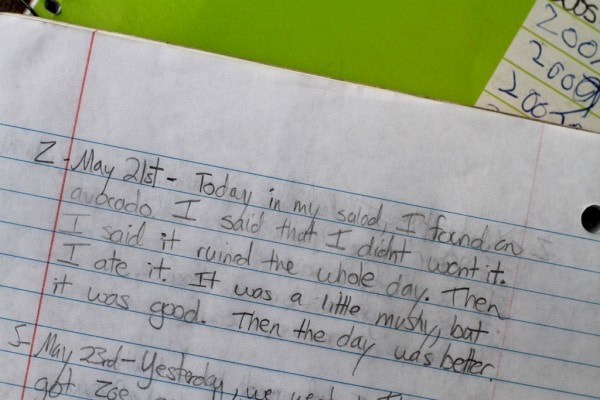 2007
2006
2005
Z - May 21st - Today in my salad, I found an
avocado. I said that I didnt want it.
I said it ruined the whole day. Then
I ate it. It was a little mushy, but
it was good. Then the day was better.
S - May 23rd - Yesterday, we
got Zoe